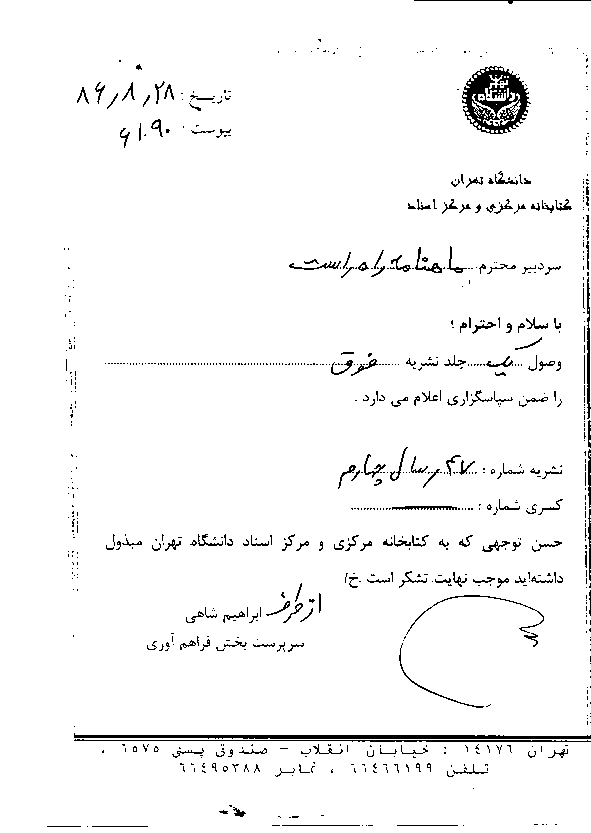 تاریخ: ۸۶/۸/۲۸
پیوست: ۶۱۰۹۰
دانشگاه تهران
کتابخانه مرکزی و مرکز اسناد
سردبیر محترم ماهنامه راه راست
با سلام و احترام ؛
وصول یک جلد نشریه فوق
را ضمن سپاسگزاری اعلام می دارد .
نشریه شماره : ۴۷ سال چهارم
کسری شماره :
حسن توجهی که به کتابخانه مرکزی و مرکز اسناد دانشگاه تهران مبذول
داشته‌اید موجب نهایت تشکر است .خ/
از طرف ابراهیم شاهی
سرپرست بخش فراهم آوری
تهران ۱۴۱۷۶ : خیابان انقلاب - صندوق پستی ۶۵۷۵ ،
تلفن ۶۶۴۶۶۱۹۹ ، نمابر ۶۶۴۹۵۳۸۸